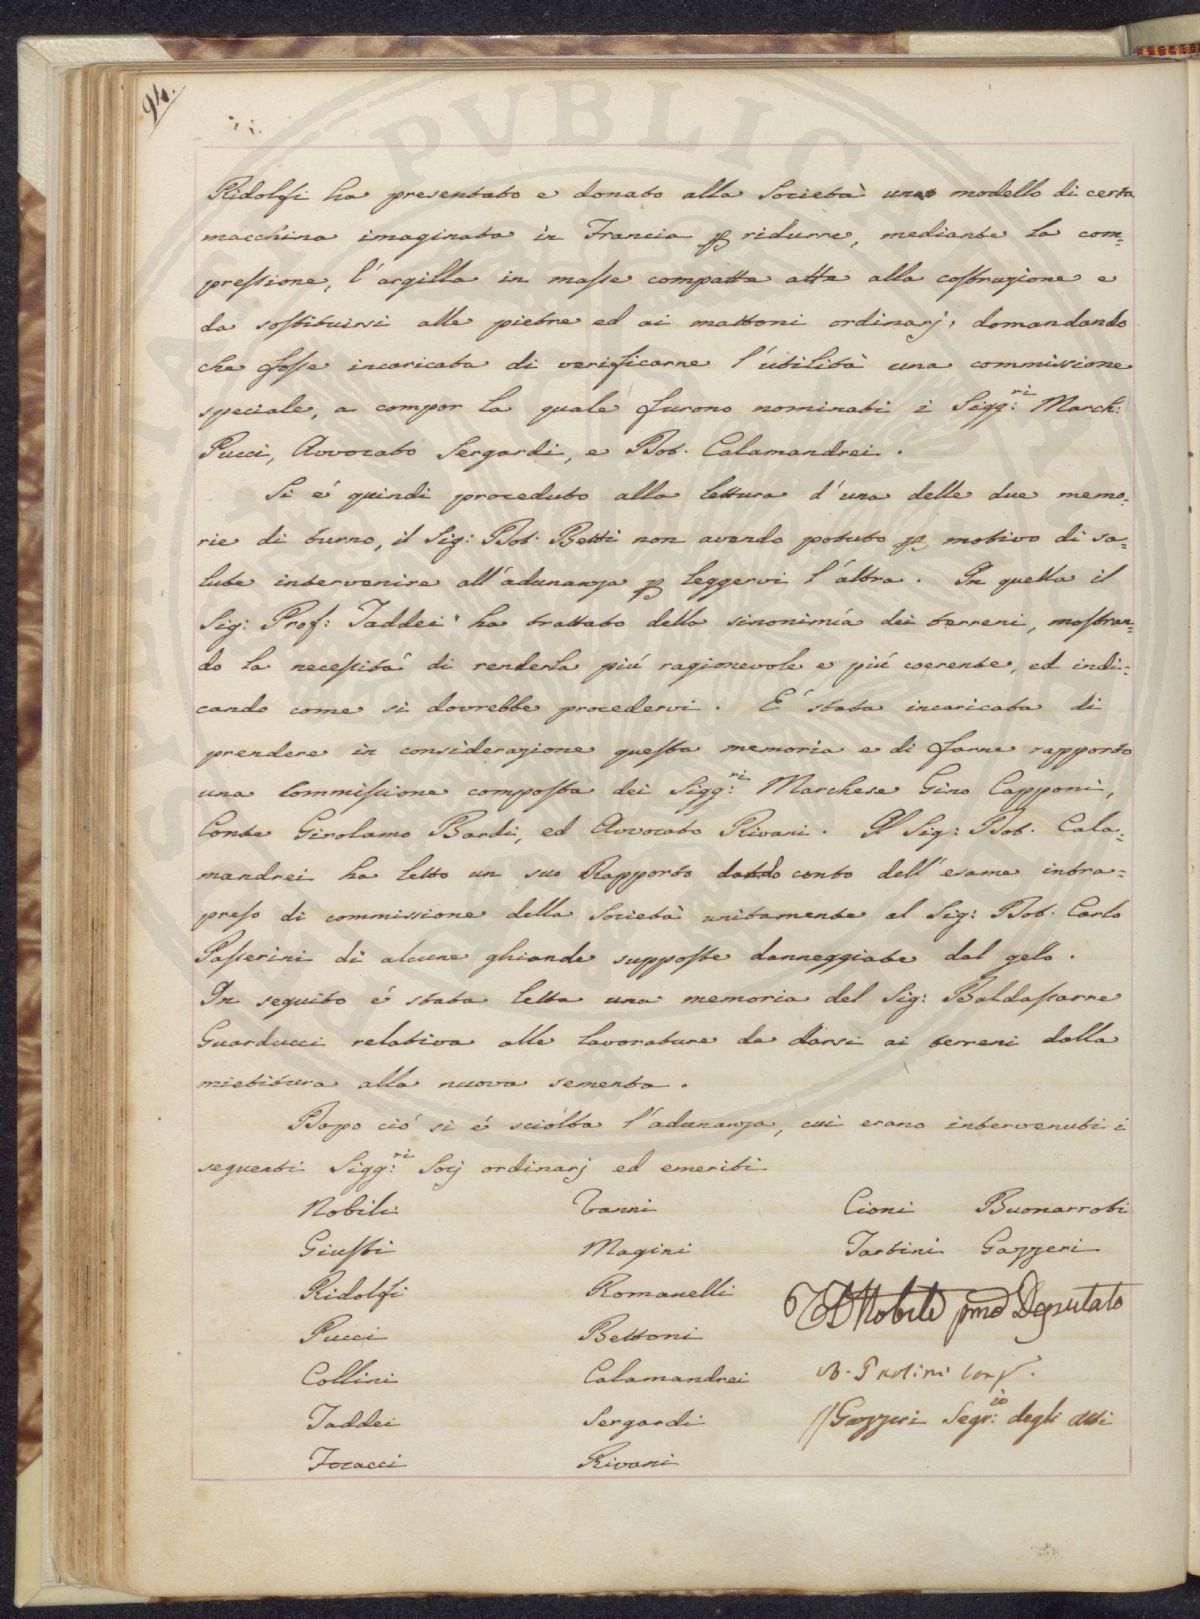 94.
Ridolfi ha presentato e donato alla Società uno modello di certa
macchina imaginata in Francia p ridurre, mediante la com=
pressione, l'argilla in masse compatte atte alla costruzione e
da sostituirsi alle pietre ed ai mattoni ordinarj; domandando
che fosse incaricata di verificarne l'utilità una commissione
speciale, a compor la quale furono nominati i Sigg:ri March:
Pucci, Avvocato Sergardi, e Dot. Calamandrei.
Si é quindi proceduto alla lettura d'una delle due memo=
rie di turno, il Sig: Dot: Betti non avendo potuto p motivo di sa=
lute intervenire all'adunanza p leggervi l'altra. In quella il
Sig: Prof: Taddei ha trattato della sinonimía dei terreni, mostran=
do la necessità di renderla piú ragionevole e piú coerente, ed indi=
cando come si dovrebbe procedervi. E' stata incaricata di
prendere in considerazione questa memoria e di farne rapporto
una Commissione composta dei Sigg:ri Marchese Gino Capponi,
Conte Girolamo Bardi, ed Avvocato Rivani. Il Sig: Dot. Cala=
mandrei ha letto un suo Rapporto dando conto dell'esame intra=
preso di commissione della Società unitamente al Sig: Dot. Carlo
Passerini di alcune ghiande supposte danneggiate dal gelo.
In seguito é stata letta una memoria del Sig: Baldassarre
Guarducci relativa alle lavorature da darsi ai terreni dalla
mietitura alla nuova sementa.
Dopo ció si é sciólta l'adunanza, cui erano intervenuti i
seguenti Sigg:ri Socj ordinarj ed emeriti
Nobili Vanni Cioni Buonarroti
Giusti Magini Tartini Gazzeri
Ridolfi Romanelli
Nobili pmo Deputato
Pucci Bettoni
Collini Calamandrei
Paolini
Taddei Sergardi
Gazzeri Segr:io degli Atti
Focacci Rivani